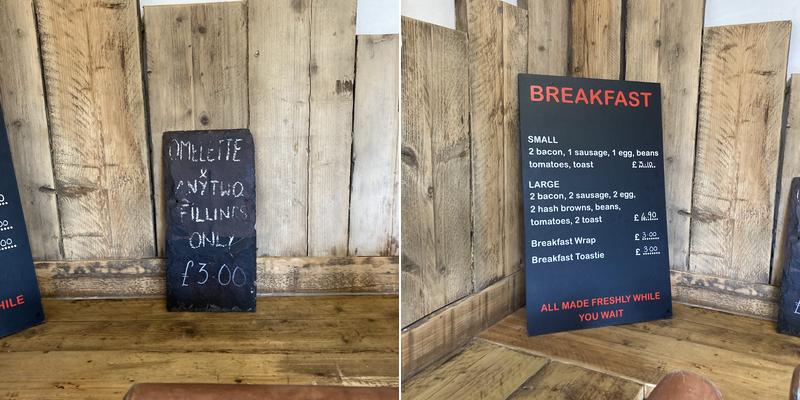 OMELETTE
x
ANY TWO
FILLINGS
ONLY
£3.00
00
00
HILE
BREAKFAST
SMALL
2 bacon, 1 sausage, 1 egg, beans
tomatoes, toast £
LARGE
2 bacon, 2 sausage, 2 egg,
2 hash browns, beans,
tomatoes, 2 toast £ 6.90
Breakfast Wrap £ 3.00
Breakfast Toastie £ 3.00
ALL MADE FRESHLY WHILE
YOU WAIT